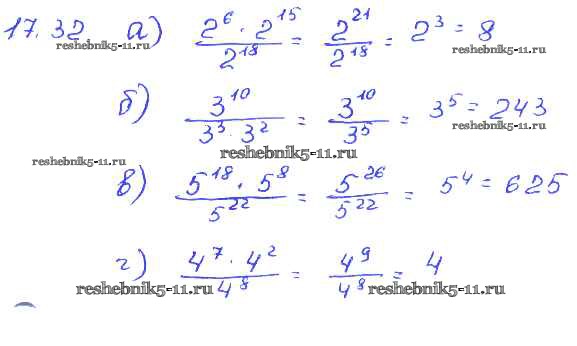 17.32 а) 2^6 · 2^15 / 2^18 = 2^21 / 2^18 = 2^3 = 8
reshebnik5-11.ru reshebnik5-11.ru
б) 3^10 / 3^3 · 3^2 = 3^10 / 3^5 = 3^5 = 243
reshebnik5-11.ru
reshebnik5-11.ru
reshebnik5-11.ru
в) 5^18 · 5^8 / 5^22 = 5^26 / 5^22 = 5^4 = 625
г) 4^7 · 4^2 / 4^8 = 4^9 / 4^8 = 4
reshebnik5-11.ru reshebnik5-11.ru